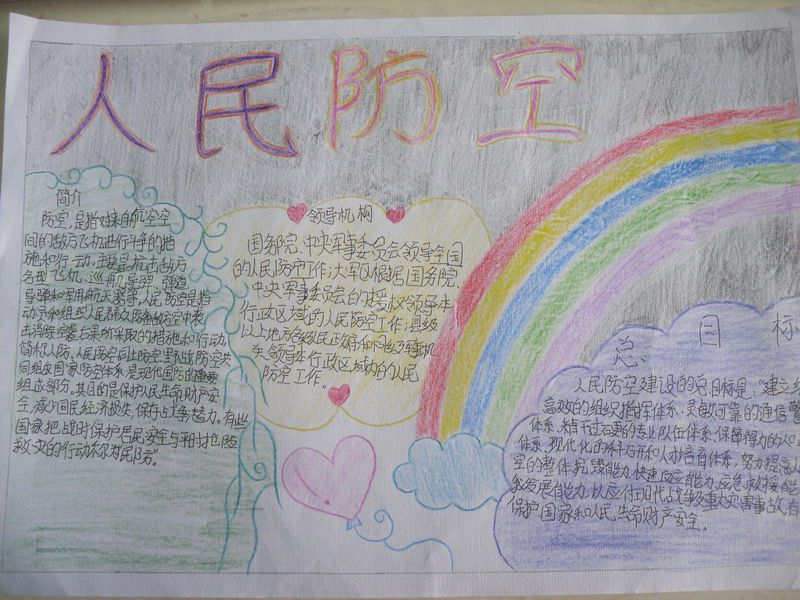 人民防空
简介
防空,是指对来自航空空
间的敌方飞机进行斗争的措
施和行动,主要是抗击敌方
各型飞机、巡航导弹、弹道
导弹和军用航天器等,人民防空是指
动员和组织人民群众防敌的空中袭
击消除空袭后果所采取的措施和行动
简称人防。人民防空同土防空野战防空共
同组成国家防空体系,是现代国防的重要
组成部分,其目的是保护人民生命财产安
全,减少国民经济损失,保存战争潜力。有些
国家把战时保护居民安全与平时抢险
救灾的行动称为民防”。
领导机构
国务院、中央军事委员会领导全国
的人民防空工作;大军区根据国务院、
中央军事委员会的授权领导本
行政区域的人民防空工作;县级
以上地方各级人民政府和同级军事机
关领导本行政区域内的人民
防空工作。
总 目 标
人民防空建设的总目标是:“建立
高效的组织指挥体系、灵敏可靠的通信警
体系、精干过硬的专业队伍体系、保障得力的
体系、现代化的科研和人才培育体系,努力提高
空的整体抗毁能力、快速反应能力、应急救援能
和发展能力,以应付现代战争及重大灾害事故,有
保护国家和人民生命财产安全。